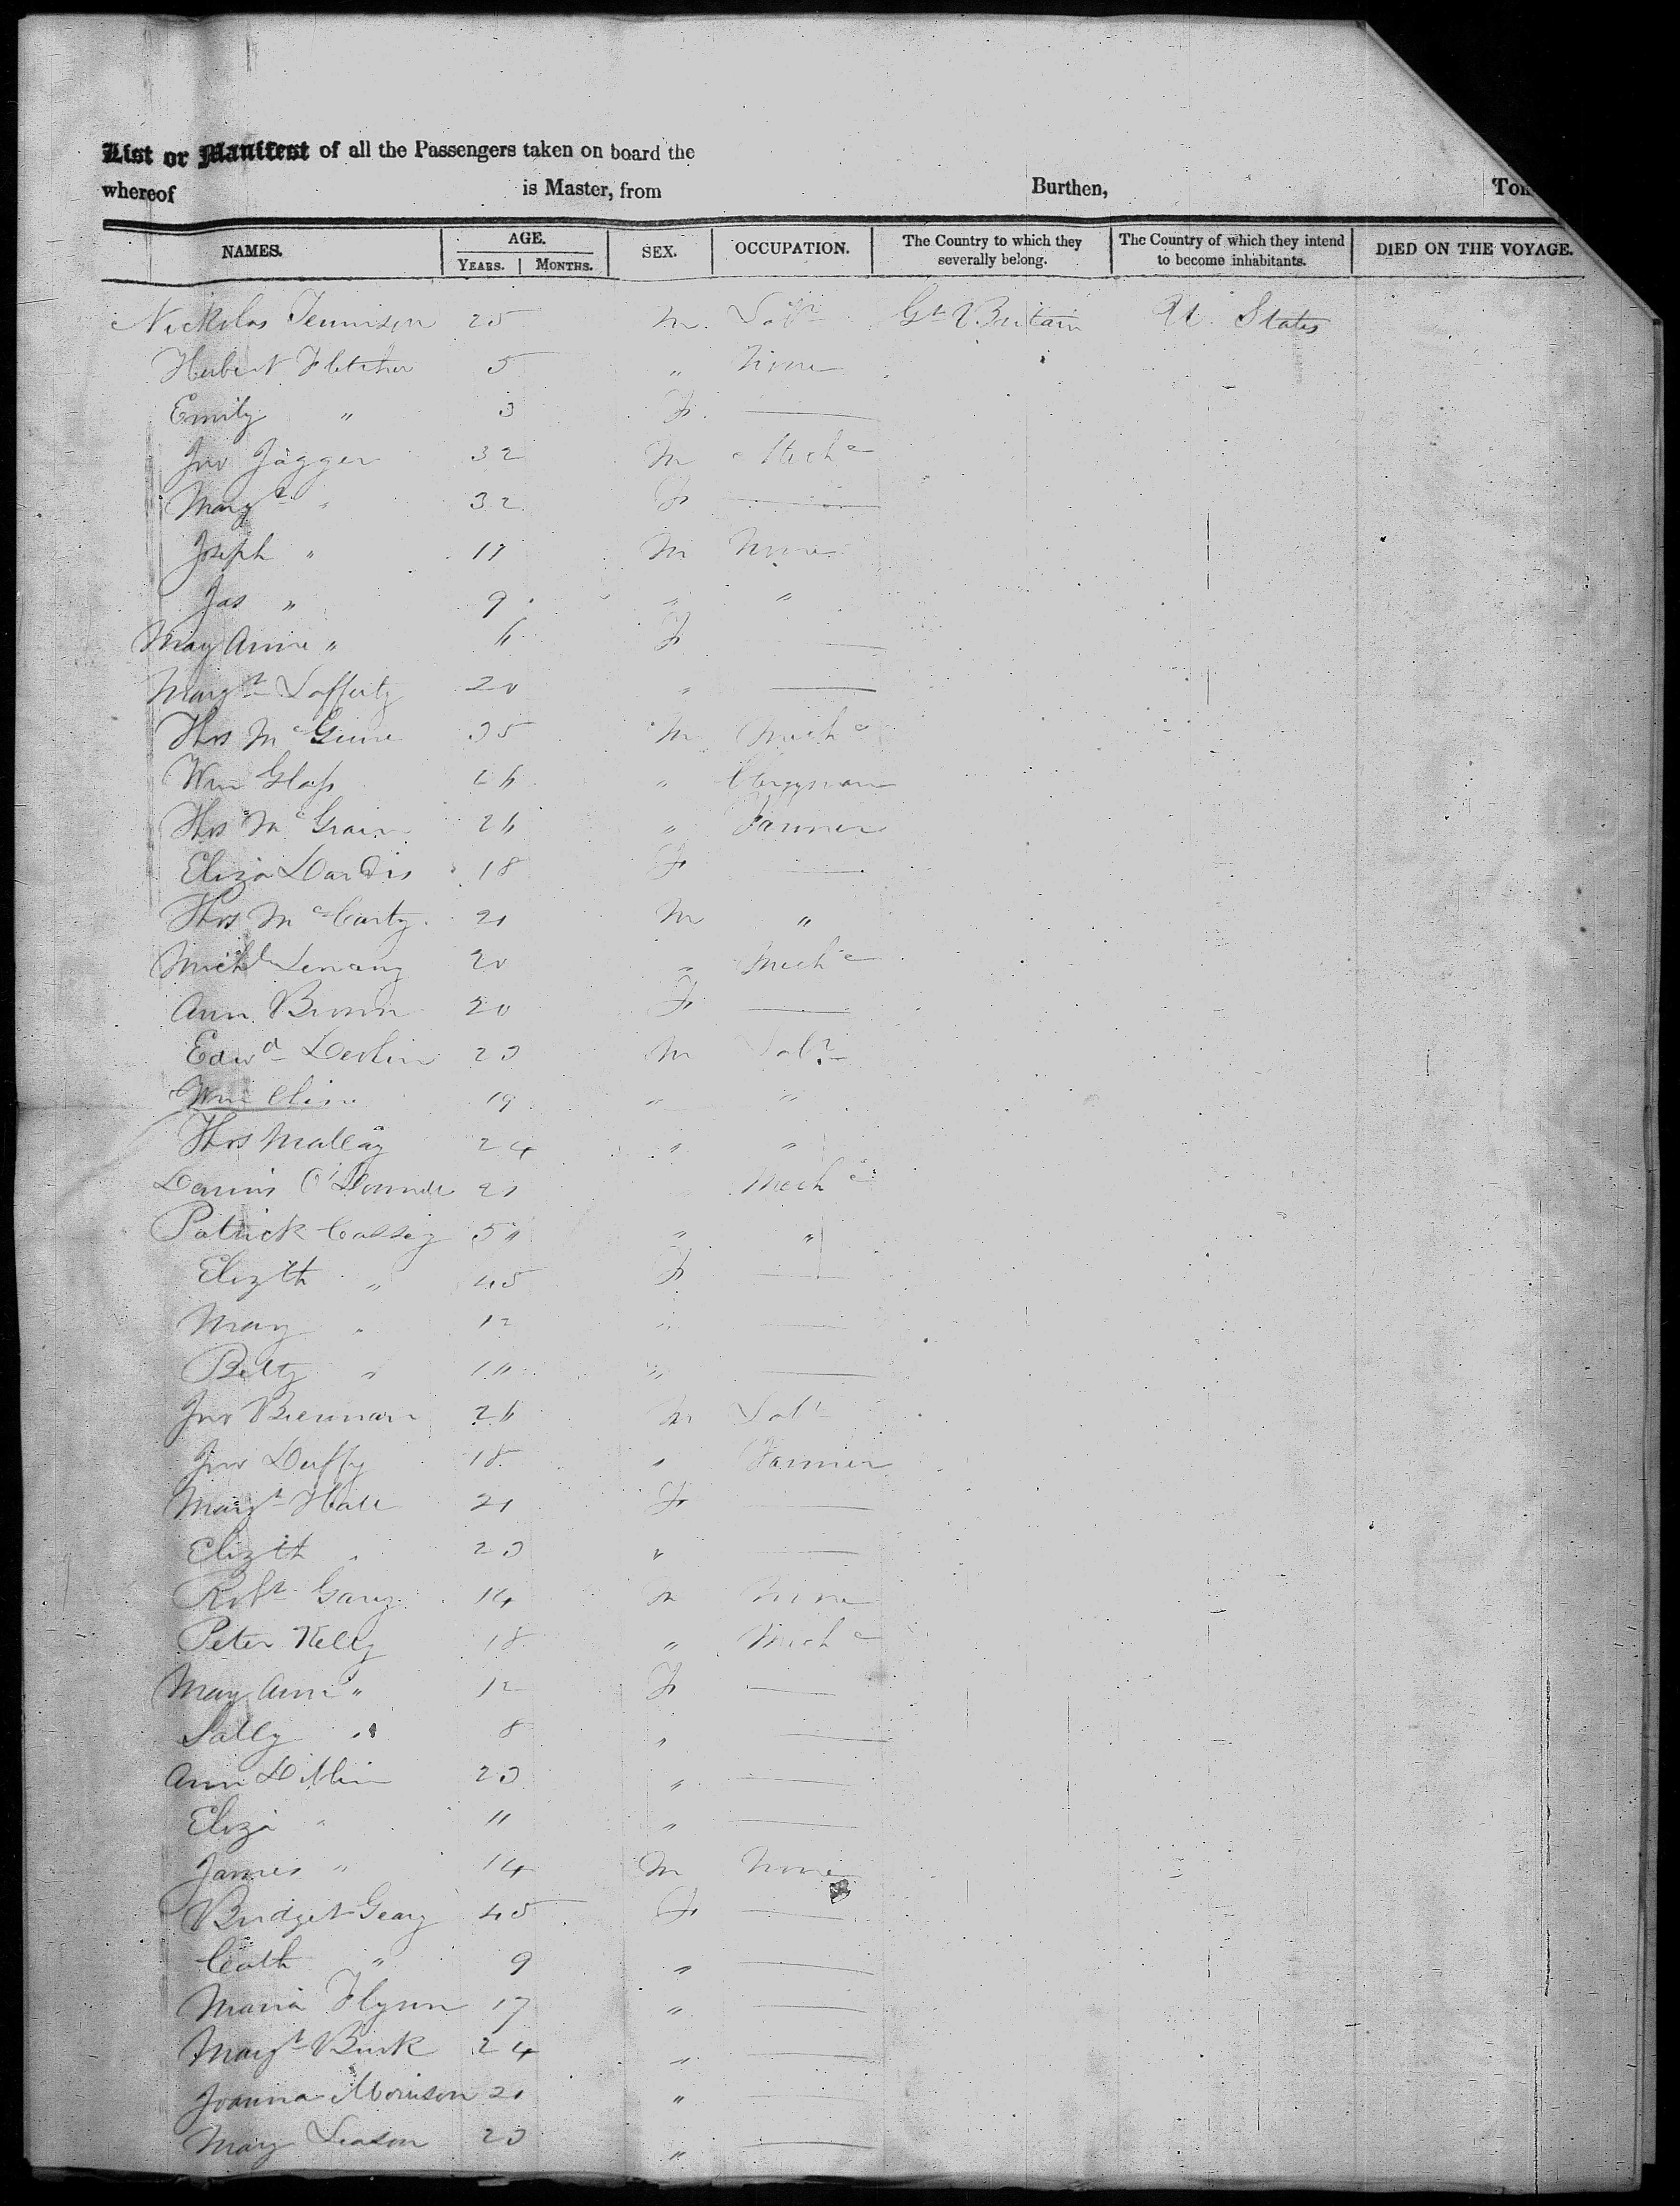 List or Manifest of all the Passengers taken on board the
whereof is Master, from Burthen, Tons
NAMES. AGE. SEX. OCCUPATION. The Country to which they severally belong. The Country of which they intend to become inhabitants. DIED ON THE VOYAGE.
YEARS. MONTHS.
Nickolas Tennison 25 M Labr Gt Britain U. States
Herbert Fletcher 5 " None
Emily " 3 F —
Jno Jagger 32 M Mechc
Margt " 32 F —
Joseph " 11 M None
Jas " 9 " "
Mary Anne " 6 F —
Margt Lafferty 20 " —
Thos McGuire 35 M Mechc
Wm Glass 26 " Clergyman
Thos McGrain 26 " Farmer
Eliza Dardis 18 F —
Thos McCarty 21 M "
Michl 20 " Mechc
Ann Brown 20 F —
Edwd Devlin 23 M Labr
Wm Cline 19 " "
Thos Mallay 24 " "
Dennis O'Donnell 21 Mechc
Patrick Cassidy 50 " "
Elizth " 45 F —
Mary " 12 " —
Betty " 10 " —
Jno Brennan 26 M Labr
Jno Duffy 18 " Farmer
Margt Hall 21 F —
Elizth " 23 " —
Robt Gary 14 M None
Peter Kelly 18 " Mechc
Mary Ann " 12 F —
Sally " 8 " —
Ann 23 " —
Eliza " 11 " —
James " 14 M None
Bridget Geary 45 F —
Cath " 9 " —
Maria Flynn 17 " —
Margt Burk 24 " —
Joanna Morrison 21 " —
Mary Leason 23 " —